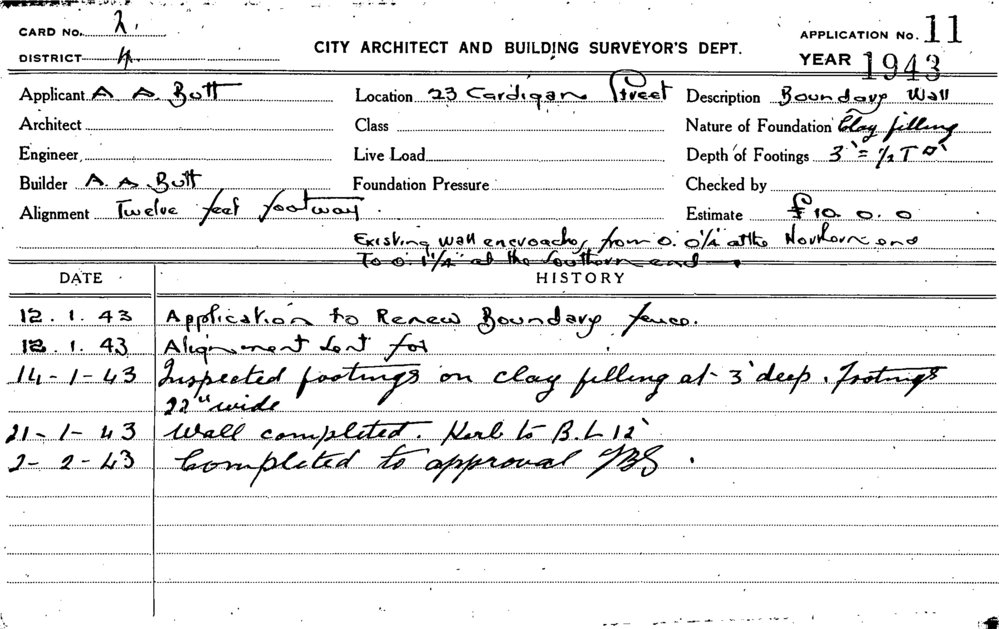 CARD No. 2.
DISTRICT 4.
CITY ARCHITECT AND BUILDING SURVEYOR'S DEPT.
APPLICATION No. 11
YEAR 1943
Applicant A A Butt Location 23 Cardigan Street Description Boundary Wall
Architect Class Nature of Foundation Clay filling
Engineer Live Load Depth of Footings 3'
Builder A. A. Butt Foundation Pressure Checked by
Alignment Twelve feet footway. Estimate £10. 0. 0
Existing Wall encroaches from 0. 0¼ at the Northern end
To 0. 1¼" at the Southern end.
DATE HISTORY
12. 1. 43 Application to Renew Boundary fence.
13. 1. 43 Alignment Sent for
14-1-43 Inspected footings on clay filling at 3' deep. Footings
22" wide
21-1-43 Wall completed. Kerb to B.L 12'
2-2-43 Completed to approval